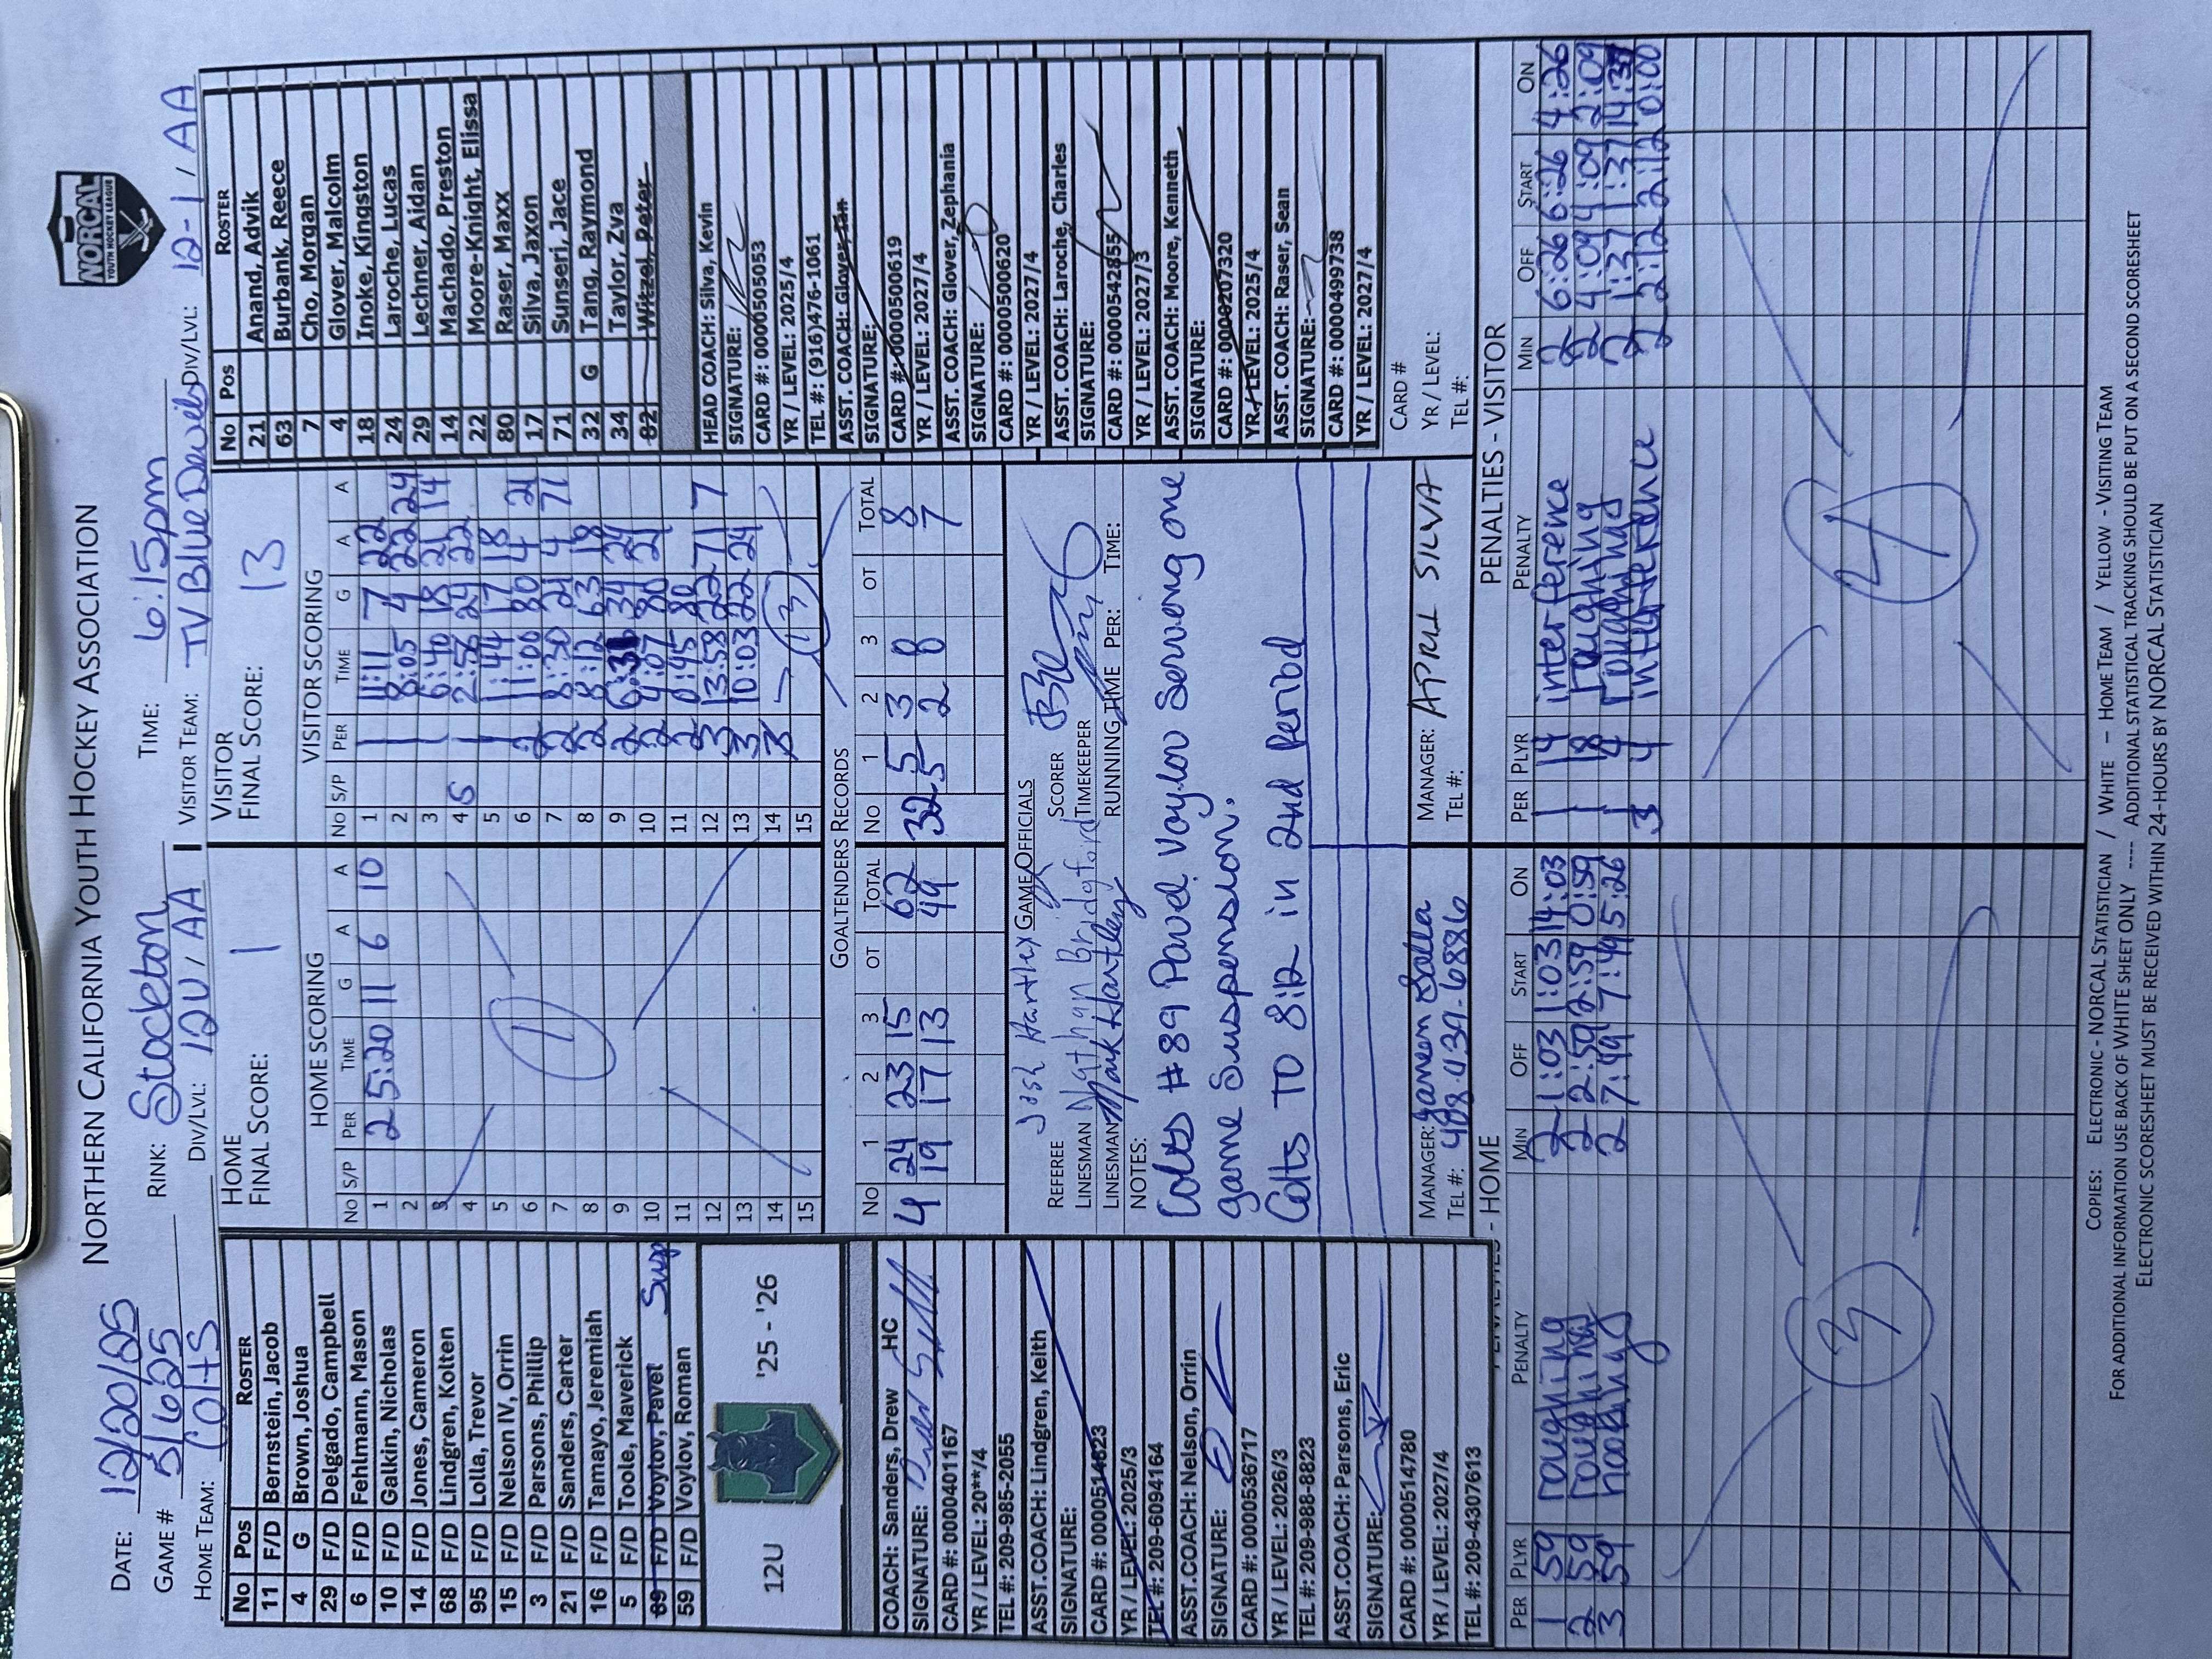 NORTHERN CALIFORNIA YOUTH HOCKEY ASSOCIATION
NORCAL
YOUTH HOCKEY LEAGUE
DATE: 12/20/25 RINK: Stockton TIME: 6:15pm
GAME # 51625
HOME TEAM: Colts DIV/LVL: 12U / AA VISITOR TEAM: TV Blue Devils DIV/LVL: 12-1 / AA
No Pos ROSTER
11 F/D Bernstein, Jacob
4 G Brown, Joshua
29 F/D Delgado, Campbell
6 F/D Fehlmann, Mason
10 F/D Galkin, Nicholas
14 F/D Jones, Cameron
68 F/D Lindgren, Kolten
95 F/D Lolla, Trevor
15 F/D Nelson IV, Orrin
3 F/D Parsons, Phillip
21 F/D Sanders, Carter
16 F/D Tamayo, Jeremiah
5 F/D Toole, Maverick
89 F/D Voylov, Pavel Susp
59 F/D Voylov, Roman
12U '25 - '26
COACH: Sanders, Drew HC
SIGNATURE:
CARD #: 0000401167
YR / LEVEL: 20**/4
TEL #: 209-985-2055
ASST.COACH: Lindgren, Keith
SIGNATURE:
CARD #: 0000514623
YR / LEVEL: 2025/3
TEL #: 209-6094164
ASST.COACH: Nelson, Orrin
SIGNATURE:
CARD #: 0000536717
YR / LEVEL: 2026/3
TEL #: 209-988-8823
ASST.COACH: Parsons, Eric
SIGNATURE:
CARD #: 0000514780
YR / LEVEL: 2027/4
TEL #: 209-4307613
HOME
FINAL SCORE: 1
HOME SCORING
No S/P PER TIME G A A
1 2 5:20 11 6 10
2
3
4
5
6
7
8
9
10
11
12
13
14
15
1
VISITOR
FINAL SCORE: 13
VISITOR SCORING
No S/P PER TIME G A A
1 1 11:11 7 22
2 1 8:05 4 22 24
3 1 6:40 18 21 14
4 S 1 2:56 24 22
5 1 1:44 17 18
6 2 11:00 80 4 21
7 2 8:30 21 4 71
8 2 8:12 63 18
9 2 6:31 34 24
10 2 4:07 80 21
11 2 0:45 80
12 3 13:58 22 71 7
13 3 10:03 22 24
14
15
13
GOALTENDERS RECORDS
No 1 2 3 OT TOTAL No 1 2 3 OT TOTAL
4 24 23 15 62 32 5 3 0 8
19 17 13 49 5 2 7
GAME OFFICIALS
REFEREE Josh Hartley SCORER
LINESMAN Nathan Bridgford TIMEKEEPER
LINESMAN Mark Hartley RUNNING TIME PER: TIME:
NOTES:
Colts #89 Pavel Voylov Serving one
game Suspension.
Colts TO 8:12 in 2nd Period
MANAGER: Janeen Lolla MANAGER: APRIL SILVA
TEL #: 408.439.6886 TEL #:
No Pos ROSTER
21 Anand, Advik
63 Burbank, Reece
7 Cho, Morgan
4 Glover, Malcolm
18 Inoke, Kingston
24 Laroche, Lucas
29 Lechner, Aidan
14 Machado, Preston
22 Moore-Knight, Elissa
80 Raser, Maxx
17 Silva, Jaxon
71 Sunseri, Jace
32 G Tang, Raymond
34 Taylor, Zva
82 Witzel, Peter
HEAD COACH: Silva, Kevin
SIGNATURE:
CARD #: 0000505053
YR / LEVEL: 2025/4
TEL #: (916)476-1061
ASST. COACH: Glover, Ian
SIGNATURE:
CARD #: 0000500619
YR / LEVEL: 2027/4
ASST. COACH: Glover, Zephania
SIGNATURE:
CARD #: 0000500620
YR / LEVEL: 2027/4
ASST. COACH: Laroche, Charles
SIGNATURE:
CARD #: 0000542855
YR / LEVEL: 2027/3
ASST. COACH: Moore, Kenneth
SIGNATURE:
CARD #: 0000207320
YR / LEVEL: 2025/4
ASST. COACH: Raser, Sean
SIGNATURE:
CARD #: 0000499738
YR / LEVEL: 2027/4
CARD #
YR / LEVEL:
TEL #:
PENALTIES - HOME
PER PLYR PENALTY MIN OFF START ON
1 59 roughing 2 1:03 1:03 14:03
2 59 roughing 2 2:59 2:59 0:59
3 59 hooking 2 7:49 7:49 5:26
3
PENALTIES - VISITOR
PER PLYR PENALTY MIN OFF START ON
1 14 interference 2 6:26 6:26 4:26
1 18 roughing 2 4:09 4:09 2:09
1 4 roughing 2 1:37 1:37 14:37
3 4 interference 2 2:12 2:12 0:00
4
COPIES: ELECTRONIC - NORCAL STATISTICIAN / WHITE – HOME TEAM / YELLOW - VISITING TEAM
FOR ADDITIONAL INFORMATION USE BACK OF WHITE SHEET ONLY ---- ADDITIONAL STATISTICAL TRACKING SHOULD BE PUT ON A SECOND SCORESHEET
ELECTRONIC SCORESHEET MUST BE RECEIVED WITHIN 24-HOURS BY NORCAL STATISTICIAN